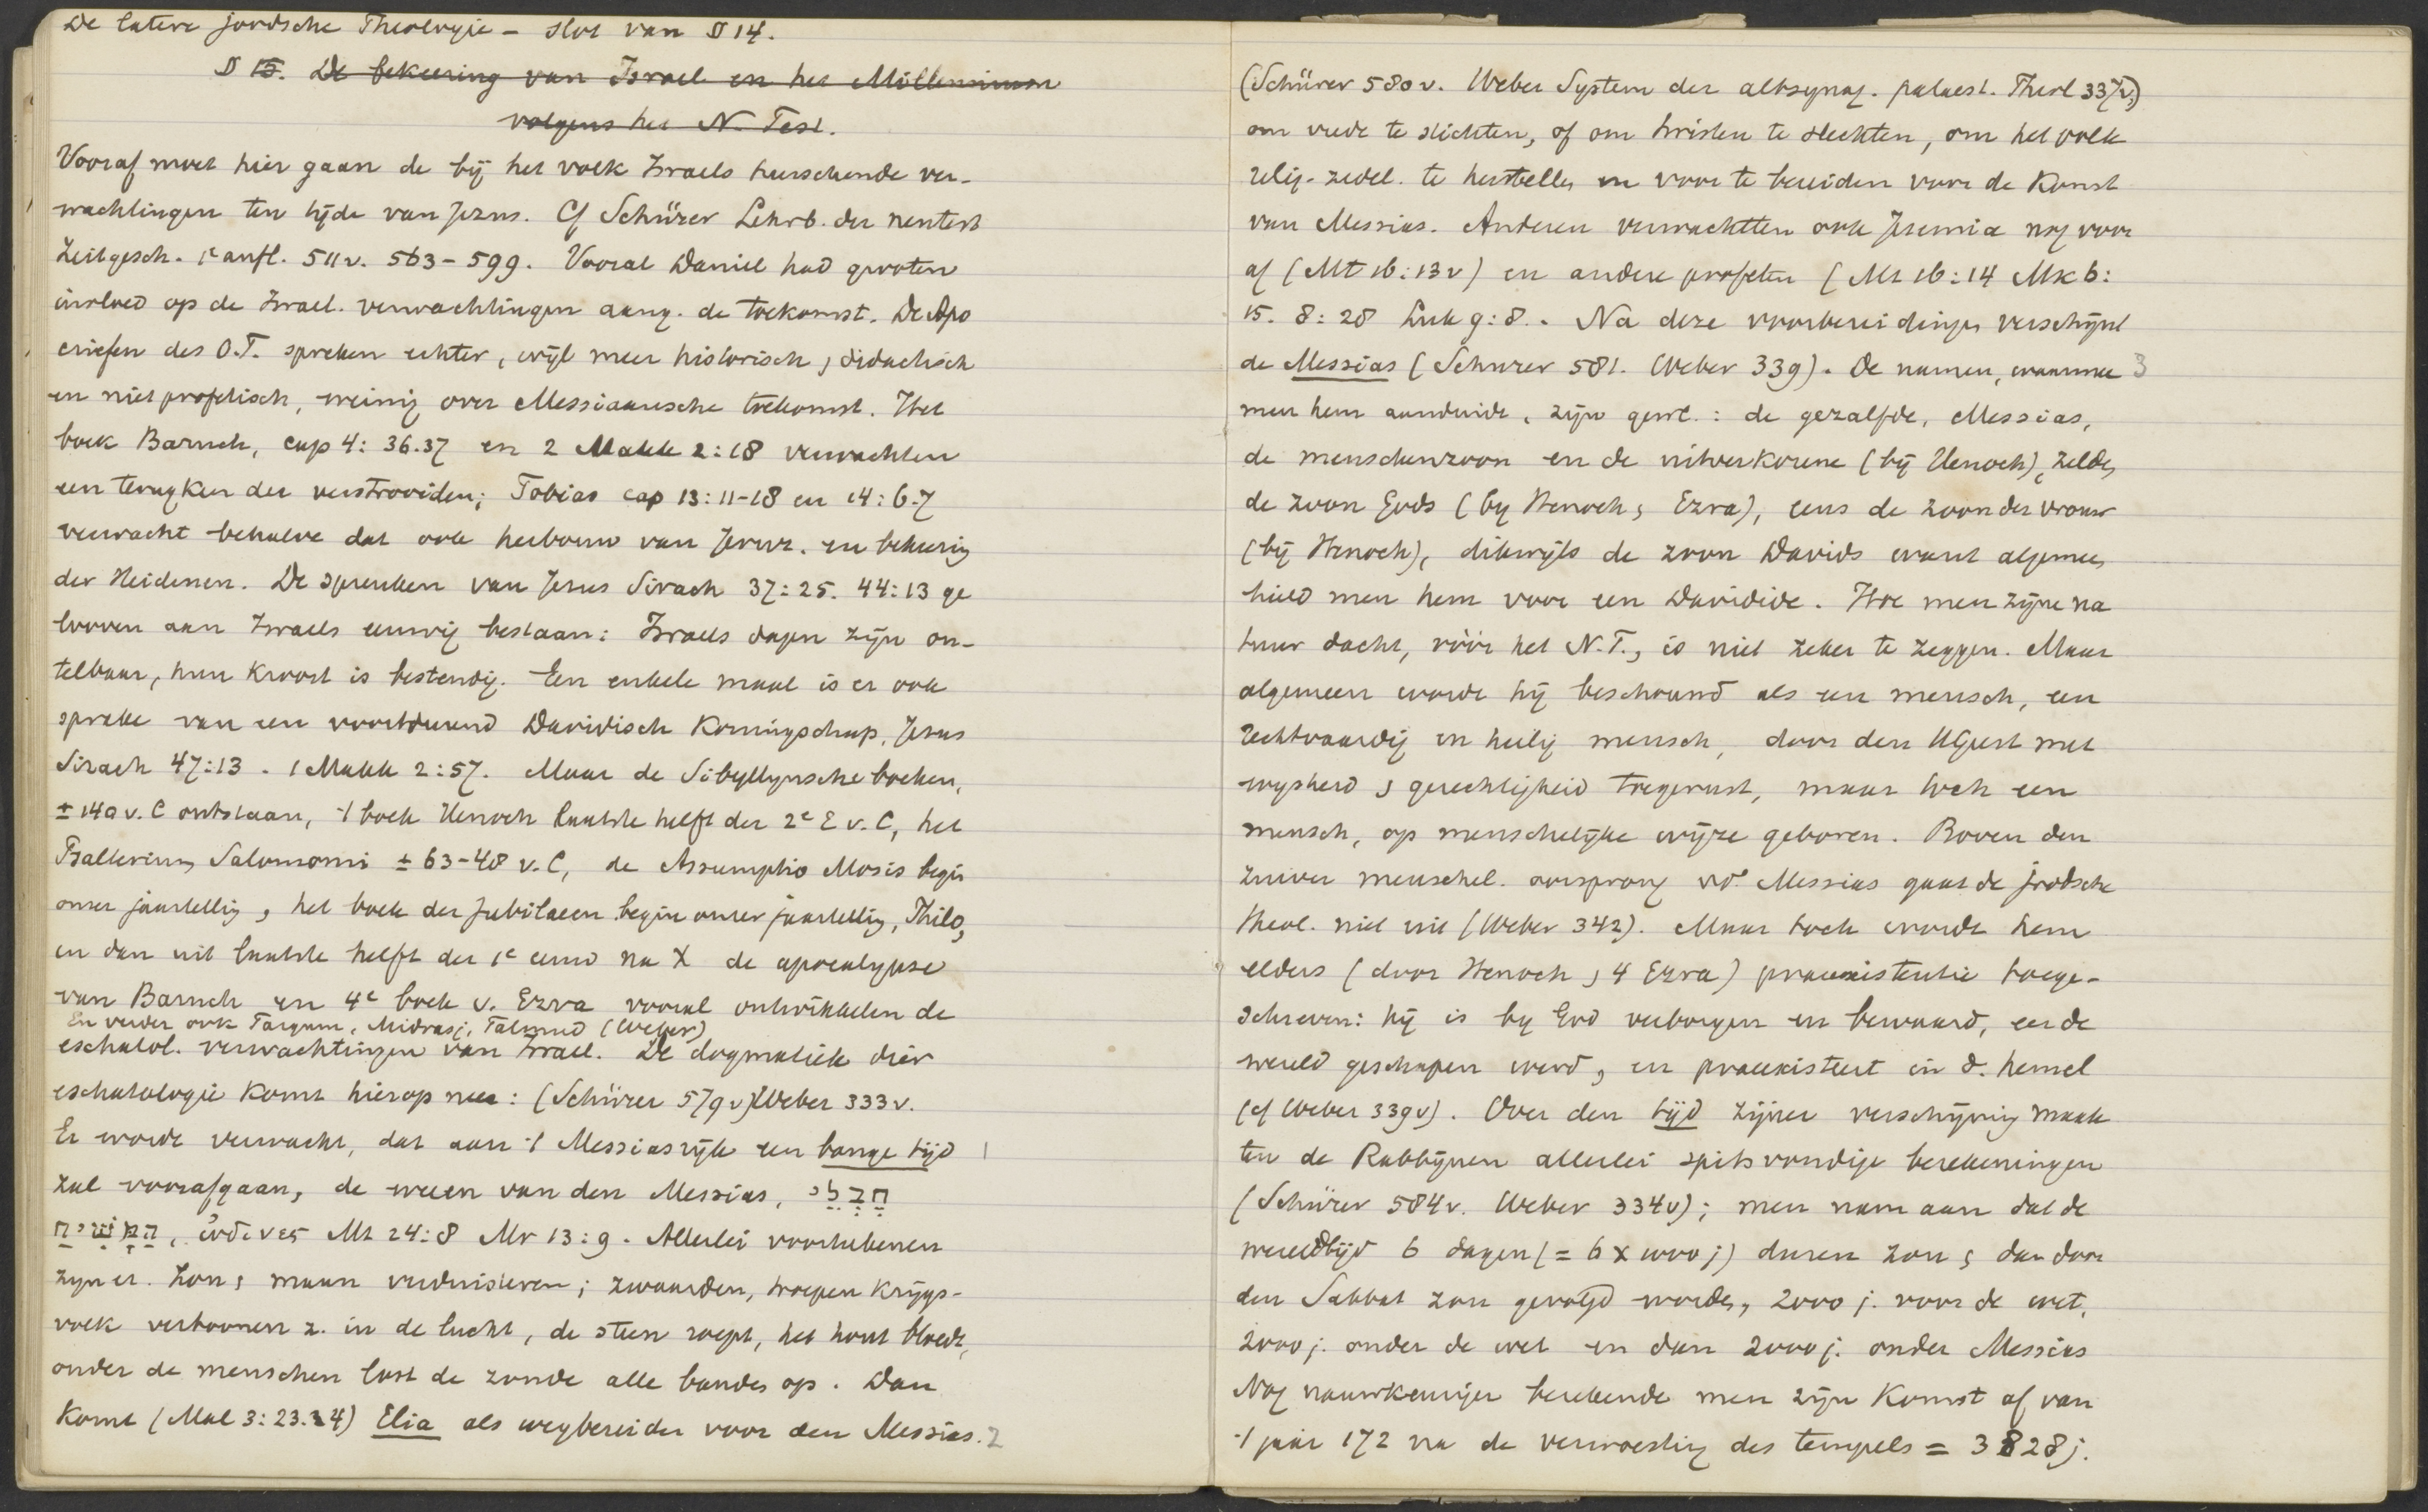 De latere joodsche Theologie – slot van § 14.
§ 15. De bekeering van Israel en het Millennium
volgens het N. Test.
Vooraf moet hier gaan de bij het volk Israels heerschende ver-
wachtingen ten tijde van Jezus. Cf Schürer Lehrb. der neutest
Zeitgesch. 1e aufl. 511v. 563–599. Vooral Daniel had grooten
invloed op de Israel. verwachtingen aang. de toekomst. De Apo
criefen des O.T. spreken echter, wijl meer historisch, didactisch
en niet profetisch, weinig over Messiaansche toekomst. Het
boek Baruch, cap 4: 36.37 en 2 Makk 2:18 verwachten
een terugkeer der verstrooiden; Tobias cap 13:11-18 en 14:6.7
verwacht behalve dat ook herbouw van Jeruz. en bekeering
der Heidenen. De spreuken van Jesus Sirach 37:25. 44:13 ge
looven aan Israels eeuwig bestaan: Israels dagen zijn on-
telbaar, hun kroost is bestendig. Een enkele maal is er ook
sprake van een voortdurend Davidisch Koningschap, Jesus
Sirach 47:13. 1 Makk 2:57. Maar de Sibyllynsche boeken,
± 140 v. C ontstaan, 't boek Henoch laatste helft der 2e E v. C, het
Psalterium Salomonis ± 63–48 v. C, de Assumptio Mosis begin
onzer jaartelling, het boek der Jubilaeen begin onzer jaartelling, Philo,
en dan uit laatste helft der 1e eeuw na X de apocalypse
van Baruch en 4e boek v. Ezra vooral ontwikkelen de
En verder ook Targum, Midrasj, Talmud (Weber)
eschatol. verwachtingen van Israel. De dogmatiek dier
eschatologie komt hierop neer: (Schürer 579v) Weber 333v.
Er wordt verwacht, dat aan 't Messiasrijk een bange tijd 1
zal voorafgaan, de weeen van den Messias, חבלי
המשיח, ὠδινες Mt 24:8 Mr 13:9. Allerlei voorteekenen
zijn er. Zon, maan verduisteren; zwaarden, troepen krijgs-
volk vertoonen z. in de lucht, de steen roept, het hout bloedt,
onder de menschen lost de zonde alle banden op. Dan
komt (Mal 3: 23.24) Elia als wegbereider voor den Messias. 2
(Schürer 580v. Weber System der altsynag. palaest. Theol 337v)
om vrede te stichten, of om twisten te slechten, om het volk
relig-zedel. te herstellen en voor te bereiden voor de Komst
van Messias. Anderen verwachtten ook Jeremia nog voor
af (Mt 16:13v) en andere profeten (Mt 16:14 Mk 6:
15. 8:28 Luk 9:8. Na deze voorbereidingen verschijnt
de Messias (Schurer 581. Weber 339). De namen, waarmee 3
men hem aanduidt, zijn gewl.: de gezalfde, Messias,
de menschenzoon en de uitverkorene (bij Henoch), zelden
de zoon Gods (by Henoch, Ezra), eens de zoon der vrouw
(bij Henoch), dikwijls de zoon Davids want algemeen
hield men hem voor een Davidide. Hoe men zijne na
tuur dacht, vóór het N.T., is niet zeker te zeggen. Maar
algemeen wordt hij beschouwd als een mensch, een
rechtvaardig en heilig mensch, door den HGeest met
wysheid, gerechtigheid toegerust, maar toch een
mensch, op menschelijke wijze geboren. Boven den
zuiver menschel. oorsprong vd. Messias gaat de joodsche
theol. niet uit (Weber 342). Maar toch wordt hem
elders (door Henoch, 4 Ezra) praeexistentie toege-
schreven: hij is by God verborgen en bewaard, eer de
wereld geschapen werd, en praeexisteert in d. hemel
(cf Weber 339v). Over den tijd zijner verschijning maak
ten de Rabbijnen allerlei spitsvondige berekeningen
(Schürer 584v. Weber 334v); men nam aan dat de
wereldtijd 6 dagen (= 6 x 1000 j) duren zou, dan door
den Sabbat zou gevolgd worden, 2000 j. voor de wet,
2000 j. onder de wet en dan 2000 j. onder Messias
Nog nauwkeuriger berekende men zijn Komst af van
't jaar 172 na de verwoesting des tempels = 3828 j.